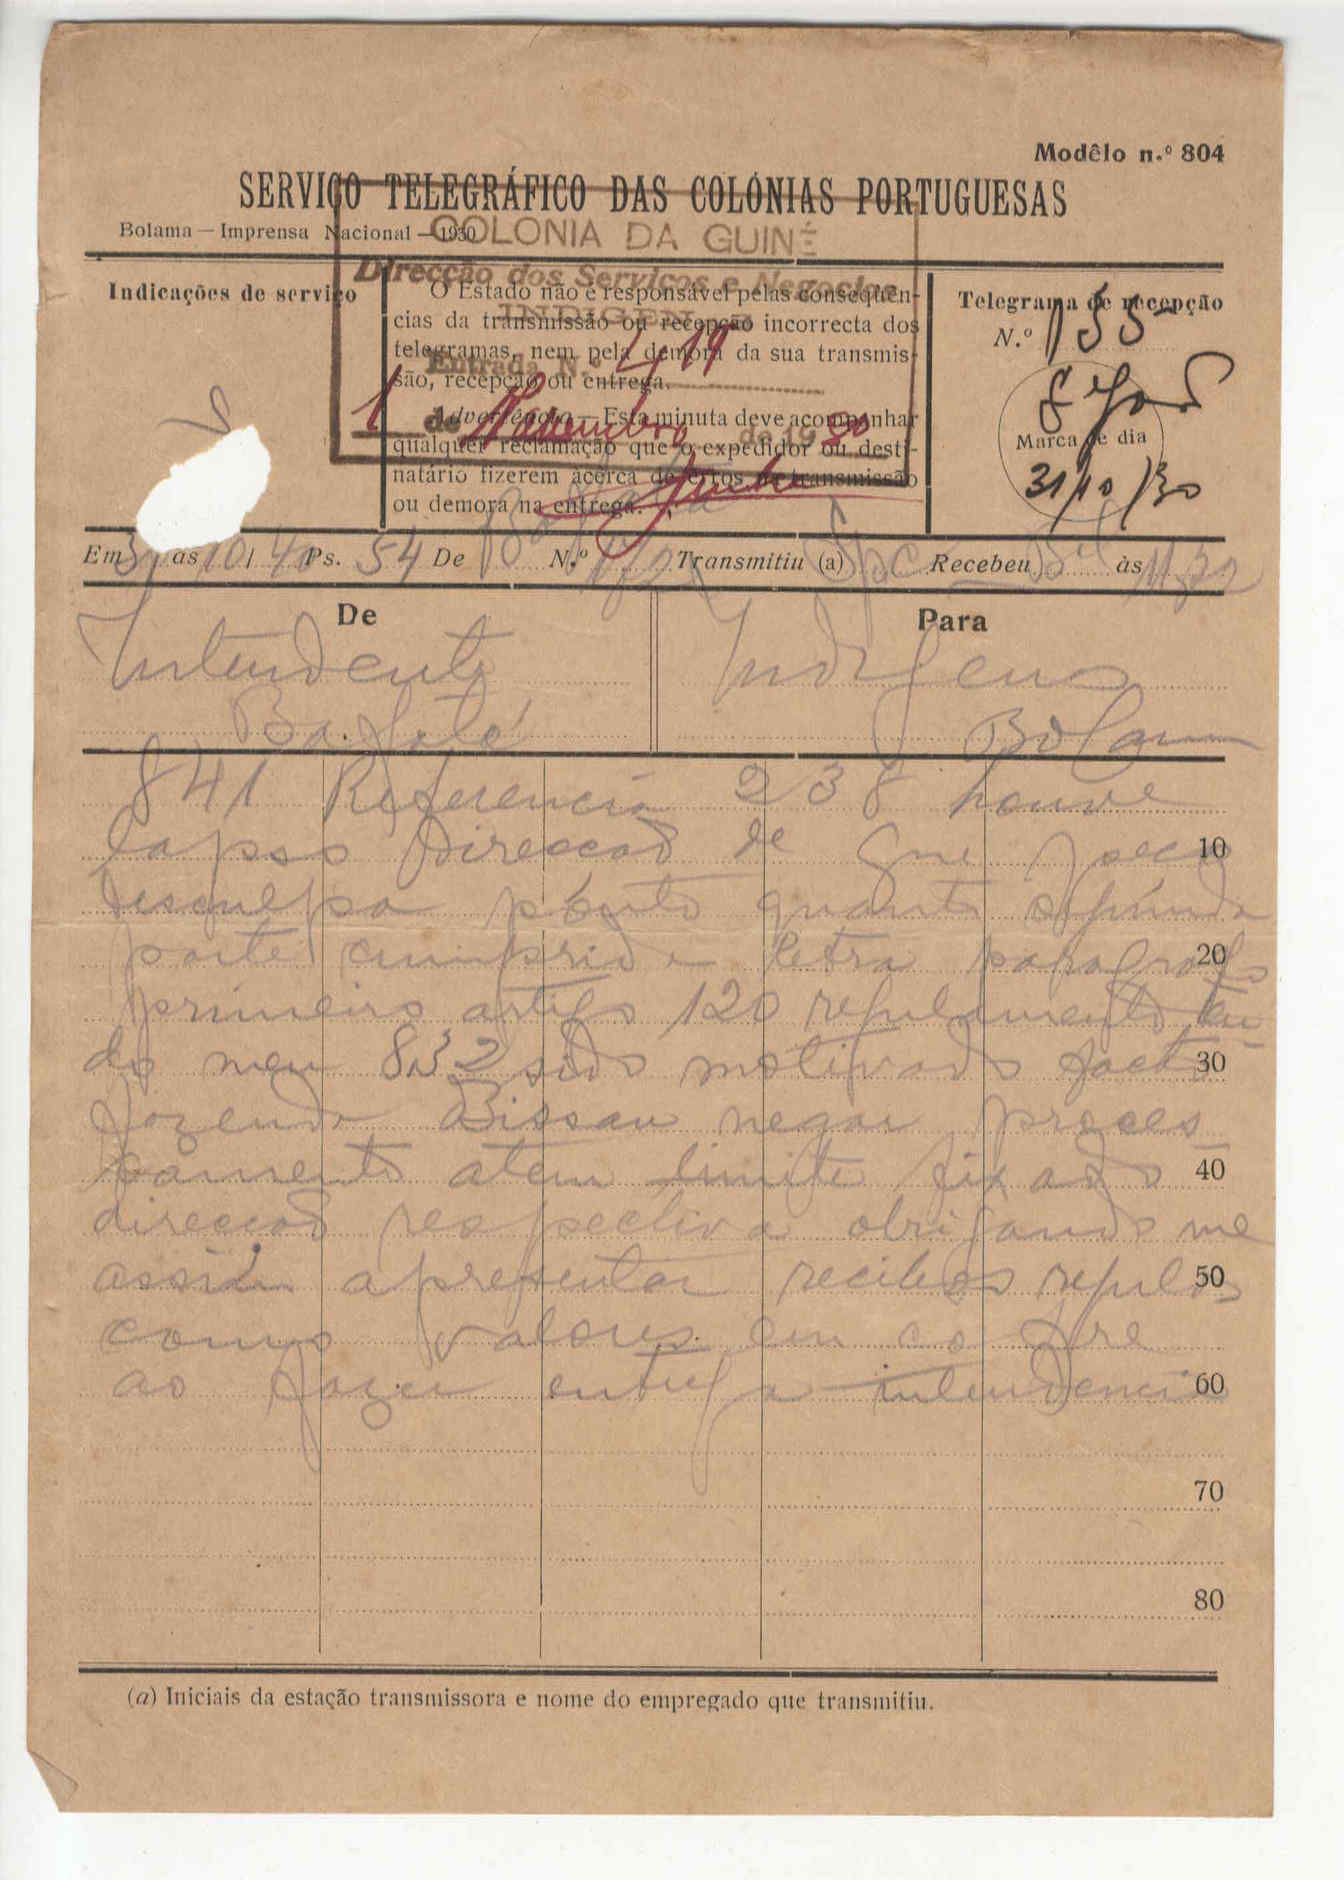 Modêlo n.º 804
SERVIÇO TELEGRÁFICO DAS COLÓNIAS PORTUGUESAS
Bolama — Imprensa Nacional — 1930
COLONIA DA GUINÉ
Direcção dos Serviços e Negocios
INDIGENAS
Entrada N.º 419
1 de Novembro de 1930
Indicações de serviço
O Estado não é responsável pelas consequên-
cias da transmissão ou recepção incorrecta dos
telegramas, nem pela demora da sua transmis-
são, recepção ou entrega.
Advertência — Esta minuta deve acompanhar
qualquer reclamação que o expedidor ou desti-
natário fizerem àcêrca de erros na transmissão
ou demora na entrega.
Telegrama de recepção
N.º 155
Marca de dia
31/10/30
Em 31 às 10/40 Ps. 54 De Bafatá N.º Transmitiu (a) Recebeu às 11,30
De
Para
Intendente
Indigenas
Bafatá
Bolama
841 Referencia 238 houve
lapso direccao de que peco
desculpa ponto quanto segunda
parte cumprida letra paragrafo
primeiro artigo 120 regulamento ten
do meu 832 sido motivado facto
fazenda Bissau negar proces
samento alem limite fixado
direccao respectiva obrigando me
assim apresentar recibos
como valores em cofre
ao fazer entrega intendencia
10
20
30
40
50
60
70
80
(a) Iniciais da estação transmissora e nome do empregado que transmitiu.